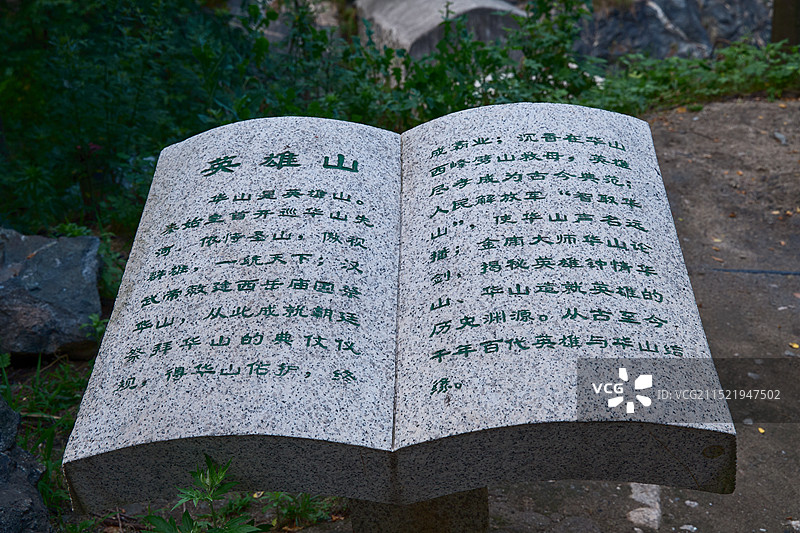 英雄山
华山是英雄山。
秦始皇首开巡华山先
河，依恃圣山，傲视
群雄，一统天下；汉
武帝敕建西岳庙固祭
华山，从此成就朝廷
祭拜华山的典仪仪
规，得华山佑护，终
成霸业；沉香在华山
西峰劈山救母，英雄
尽孝成为古今典范；
人民解放军“智取华
山”，使华山声名远
播；金庸大师华山论
剑，揭秘英雄钟情华
山、华山造就英雄的
历史渊源。从古至今，
千年百代英雄与华山结
缘。
VCG VCG211521947502